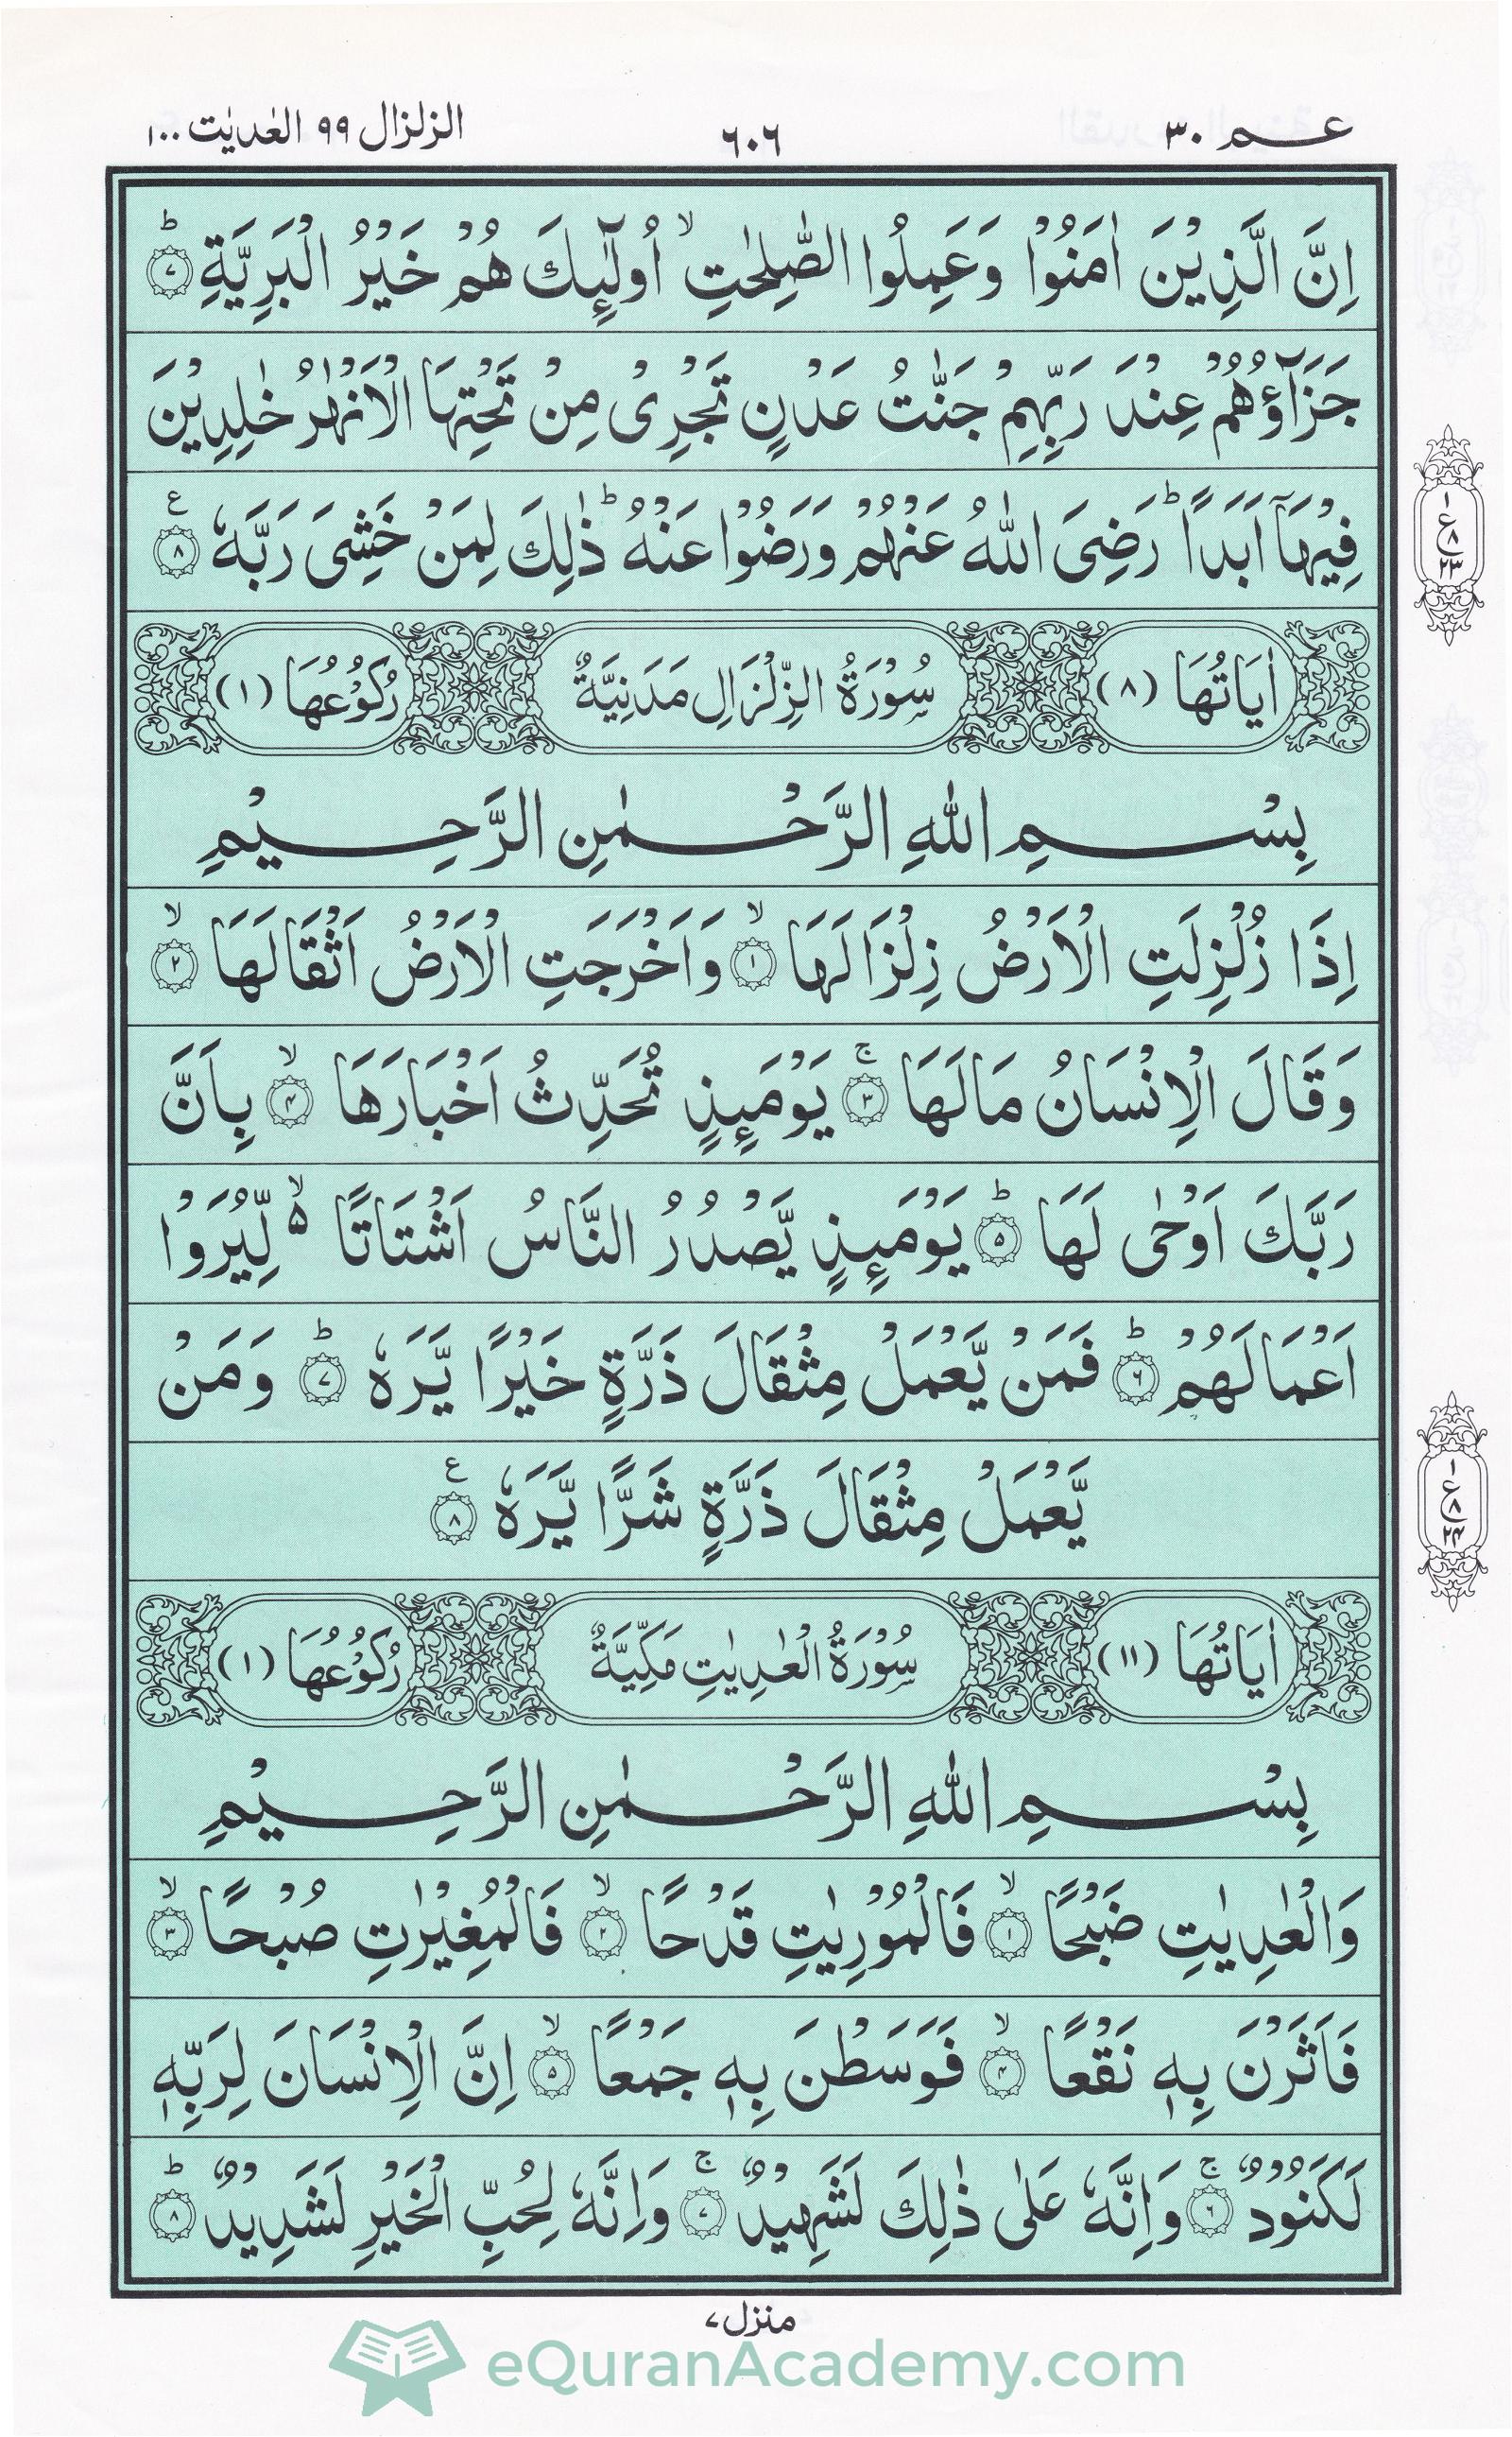 عم ٣٠
٦٠٦
الزلزال ٩٩ العٰدیٰت ١٠٠
اِنَّ الَّذِیْنَ اٰمَنُوْا وَعَمِلُوا الصّٰلِحٰتِ ۙ اُولٰٓئِكَ هُمْ خَیْرُ الْبَرِیَّةِ ؕ ﴿۷﴾
جَزَآؤُهُمْ عِنْدَ رَبِّهِمْ جَنّٰتُ عَدْنٍ تَجْرِیْ مِنْ تَحْتِهَا الْاَنْهٰرُ خٰلِدِیْنَ
فِیْهَاۤ اَبَدًا ؕ رَضِیَ اللّٰهُ عَنْهُمْ وَرَضُوْا عَنْهُ ؕ ذٰلِكَ لِمَنْ خَشِیَ رَبَّهٗ ﴿۸﴾ ع
١
ع ٨
٢٣
اٰیَاتُهَا (٨)
سُوْرَةُ الزِّلْزَالِ مَدَنِیَّةٌ
رُكُوْعُهَا (١)
بِسْمِ اللّٰهِ الرَّحْمٰنِ الرَّحِیْمِ
اِذَا زُلْزِلَتِ الْاَرْضُ زِلْزَالَهَا ۙ ﴿۱﴾ وَاَخْرَجَتِ الْاَرْضُ اَثْقَالَهَا ۙ ﴿۲﴾
وَقَالَ الْاِنْسَانُ مَالَهَا ۚ ﴿۳﴾ یَوْمَىِٕذٍ تُحَدِّثُ اَخْبَارَهَا ۙ ﴿۴﴾ بِاَنَّ
رَبَّكَ اَوْحٰی لَهَا ؕ ﴿۵﴾ یَوْمَىِٕذٍ یَّصْدُرُ النَّاسُ اَشْتَاتًا ۵ۙ لِّیُرَوْا
اَعْمَالَهُمْ ؕ ﴿۶﴾ فَمَنْ یَّعْمَلْ مِثْقَالَ ذَرَّةٍ خَیْرًا یَّرَهٗ ؕ ﴿۷﴾ وَمَنْ
یَّعْمَلْ مِثْقَالَ ذَرَّةٍ شَرًّا یَّرَهٗ ﴿۸﴾ ع
١
ع ٨
٢۴
اٰیَاتُهَا (١١)
سُوْرَةُ الْعٰدِیٰتِ مَكِّیَّةٌ
رُكُوْعُهَا (١)
بِسْمِ اللّٰهِ الرَّحْمٰنِ الرَّحِیْمِ
وَالْعٰدِیٰتِ ضَبْحًا ۙ ﴿۱﴾ فَالْمُوْرِیٰتِ قَدْحًا ۙ ﴿۲﴾ فَالْمُغِیْرٰتِ صُبْحًا ۙ ﴿۳﴾
فَاَثَرْنَ بِهٖ نَقْعًا ۙ ﴿۴﴾ فَوَسَطْنَ بِهٖ جَمْعًا ۙ ﴿۵﴾ اِنَّ الْاِنْسَانَ لِرَبِّهٖ
لَكَنُوْدٌ ۚ ﴿۶﴾ وَاِنَّهٗ عَلٰی ذٰلِكَ لَشَهِیْدٌ ۚ ﴿۷﴾ وَاِنَّهٗ لِحُبِّ الْخَیْرِ لَشَدِیْدٌ ؕ ﴿۸﴾
منزل ۷
eQuranAcademy.com